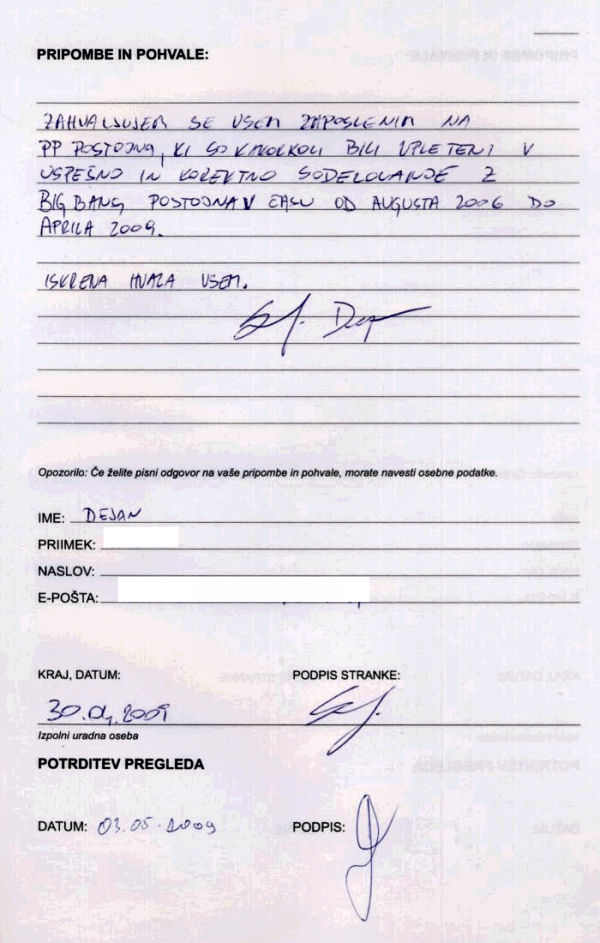 PRIPOMBE IN POHVALE:
ZAHVALJUJEM SE VSEM ZAPOSLENIM NA
PP POSTOJNA, KI SO KAKORKOLI BILI VPLETENI V
USPEŠNO IN KOREKTNO SODELOVANJE Z
BIG BANG POSTOJNA V ČASU OD AUGUSTA 2006 DO
APRILA 2009.
ISKRENA HVALA VSEM.
Opozorilo: Če želite pisni odgovor na vaše pripombe in pohvale, morate navesti osebne podatke.
IME: DEJAN
PRIIMEK:
NASLOV:
E-POŠTA:
KRAJ, DATUM: PODPIS STRANKE:
30.04.2009
Izpolni uradna oseba
POTRDITEV PREGLEDA
DATUM: 03.05.2009 PODPIS: